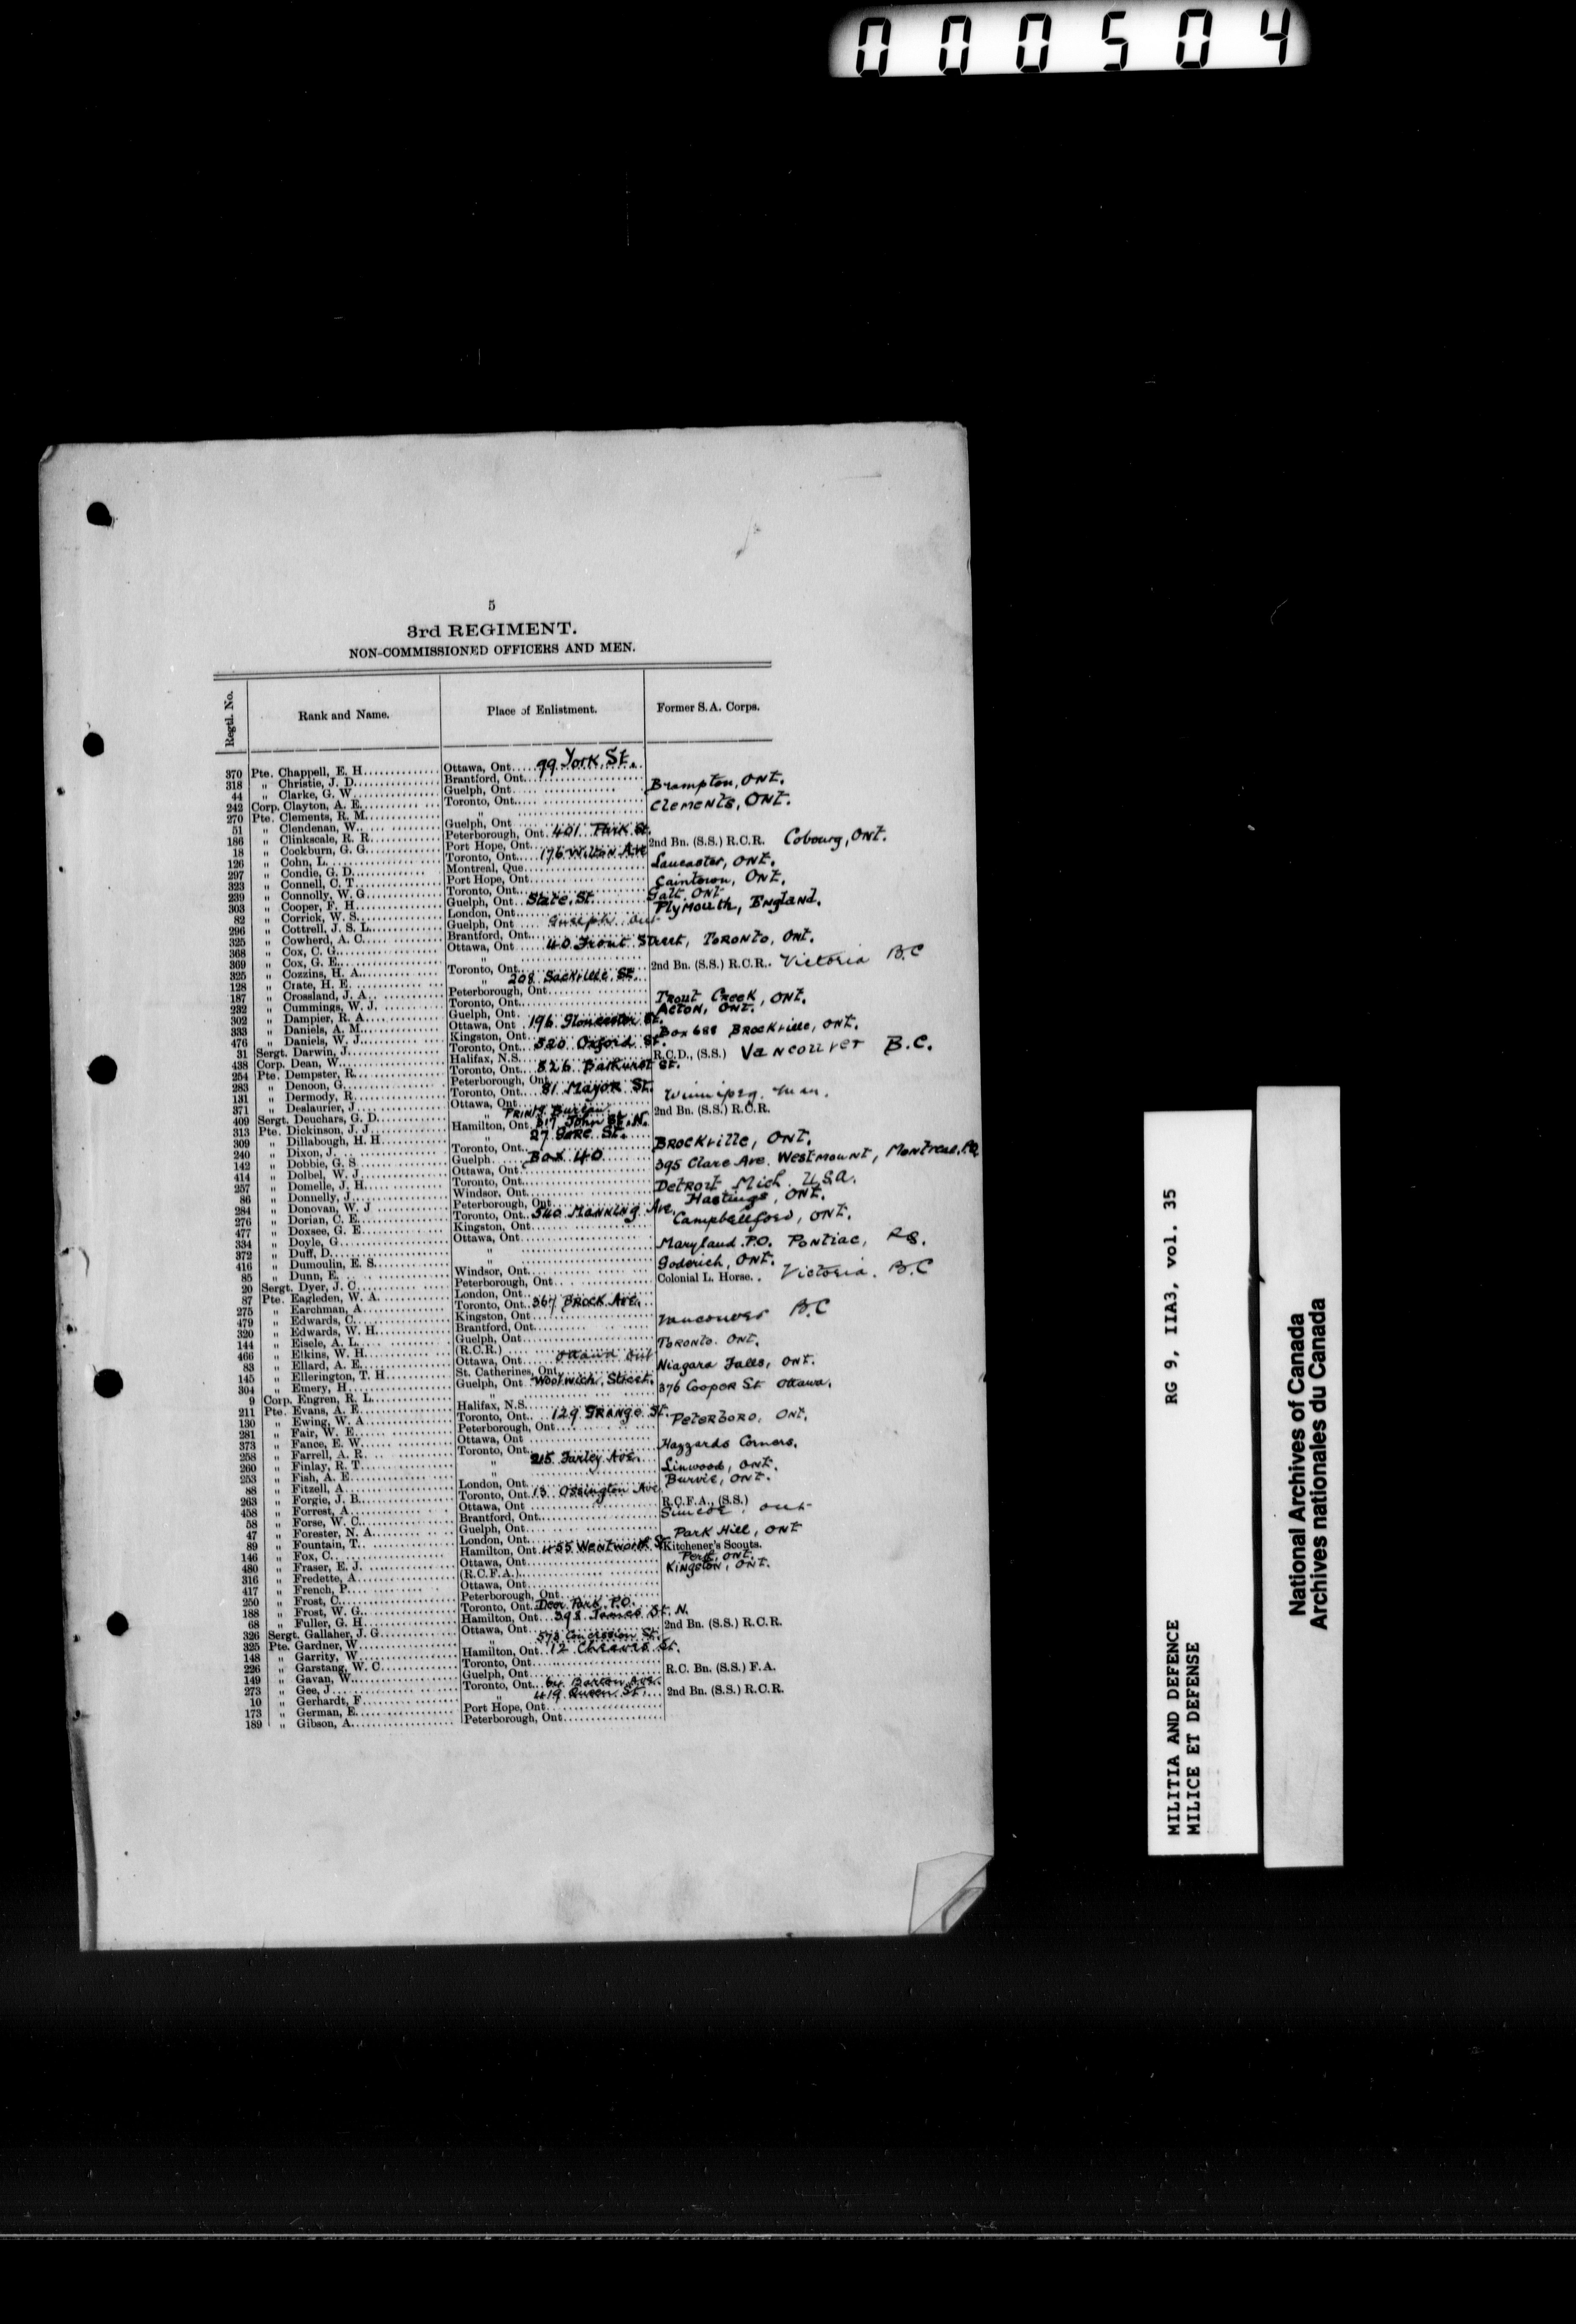 000504
5
3rd REGIMENT.
NON-COMMISSIONED OFFICERS AND MEN.
Regtl. No. Rank and Name. Place of Enlistment. Former S.A. Corps.
370 Pte. Chappell, E. H. Ottawa, Ont. 99 York St.
318 " Christie, J. D. Brantford, Ont.
44 " Clarke, G. W. Guelph, Ont. Brampton, Ont.
242 Corp. Clayton, A. E. Toronto, Ont. Clements, Ont.
270 Pte. Clements, R. M. "
51 " Clendenan, W. Guelph, Ont
186 " Clinkscale, R. R. Peterborough, Ont. 401 Park St.
18 " Cockburn, G. G. Port Hope, Ont. 2nd Bn. (S.S.) R.C.R. Cobourg, Ont.
126 " Cohn, L. Toronto, Ont. 176 Wilton Ave
297 " Condie, G. D. Montreal, Que. Lancaster, Ont.
323 " Connell, C. T. Port Hope, Ont. Caintown, Ont.
239 " Connolly, W. G. Toronto, Ont. Galt. Ont
303 " Cooper, F. H. Guelph, Ont. State St. Plymouth, England.
82 " Corrick, W. S. London, Ont.
296 " Cottrell, J. S. L. Guelph, Ont Guelph Ont
325 " Cowherd, A. C. Brantford, Ont.
368 " Cox, C. G. Ottawa, Ont 40 Front Street, Toronto, Ont.
369 " Cox, G. E. "
325 " Cozzins, H. A. Toronto, Ont. 2nd Bn. (S.S.) R.C.R. Victoria B.C
128 " Crate, H. E. " 208 Sackville St.
187 " Crossland, J. A. Peterborough, Ont
232 " Cummings, W. J. Toronto, Ont. Trout Creek, Ont.
302 " Dampier, R. A. Guelph, Ont. Acton, Ont.
333 " Daniels, A. M. Ottawa, Ont 196 Gloucester St.
476 " Daniels, W. J. Kingston, Ont. Box 688 Brockville, Ont.
31 Sergt. Darwin, J. Toronto, Ont. 320 Oxford St. R.C.D., (S.S.) Vancouver B.C.
438 Corp. Dean, W. Halifax, N.S.
254 Pte. Dempster, R. Toronto, Ont. 826 Bathurst St.
283 " Denoon, G. Peterborough, Ont
131 " Dermody, R. Toronto, Ont. 81 Mayor St.
371 " Deslaurier, J. Ottawa, Ont. Winnipeg. Man.
409 Sergt. Deuchars, G. D. " Print'g Bureau 2nd Bn. (S.S.) R.C.R.
313 Pte. Dickinson, J. J. Hamilton, Ont. 317 John St. N.
309 " Dillabough, H. H. " 27 Gore St.
240 " Dixon, J. Toronto, Ont. Brockville, Ont.
142 " Dobbie, G. S. Guelph. Box 40
414 " Dolbel, W. J. Ottawa, Ont. 395 Clare Ave. Westmount, Montreal. P.Q.
257 " Domelle, J. H. Toronto, Ont.
86 " Donnelly, J. Windsor, Ont. Detroit Mich. U.S.A.
284 " Donovan, W. J Peterborough, Ont Hastings, Ont.
276 " Dorian, C. E. Toronto, Ont. 540 Manning Ave.
477 " Doxsee, G. E. Kingston, Ont Campbellford, Ont.
334 " Doyle, G. Ottawa, Ont.
372 " Duff, D. " Maryland P.O. Pontiac,
416 " Dumoulin, E. S. "
85 " Dunn, E. Windsor, Ont. Goderich, Ont.
20 Sergt. Dyer, J. C. Peterborough, Ont. Colonial L. Horse. Victoria. B.C
87 Pte. Eagleden, W. A. London, Ont.
275 " Earchman, A. Toronto, Ont. 367 Brock Ave.
479 " Edwards, C. Kingston, Ont
320 " Edwards, W. H. Brantford, Ont. Vancouver B.C
144 " Eisele, A. L. Guelph, Ont.
466 " Elkins, W. H. (R.C.R.) Toronto. Ont.
83 " Ellard, A. E. Ottawa, Ont Ottawa Ont
145 " Ellerington, T. H. St. Catherines, Ont. Niagara Falls, Ont.
304 " Emery, H. Guelph, Ont Woolwich Street.
9 Corp. Engren, R. L. " 376 Cooper St Ottawa.
211 Pte. Evans, A. E. Halifax, N.S.
130 " Ewing, W. A. Toronto, Ont. 129 Grange St.
281 " Fair, W. E. Peterborough, Ont Peterboro, Ont.
373 " Fance, E. W. Ottawa, Ont
258 " Farrell, A. R. Toronto, Ont. Hazzards Corners.
260 " Finlay, R. T. " 215 Farley Ave.
253 " Fish, A. E. " Linwood, Ont.
88 " Fitzell, A. London, Ont. Burvie, Ont.
263 " Forgie, J. B. Toronto, Ont. 13 Ossington Ave
458 " Forrest, A. Ottawa, Ont R.C.F.A., (S.S.)
58 " Forse, W. C. Brantford, Ont. Simcoe, Ont
47 " Forester, N. A. Guelph, Ont.
89 " Fountain, T. London, Ont. Park Hill, Ont
146 " Fox, C. Hamilton, Ont. 455 Wentworth St Kitchener's Scouts.
480 " Fraser, E. J. Ottawa, Ont. Perth, Ont.
316 " Fredette, A. (R.C.F.A.) Kingston, Ont.
417 " French, P. Ottawa, Ont.
250 " Frost, C. Peterborough, Ont
188 " Frost, W. G. Toronto, Ont. Deer Park P.O.
68 " Fuller, G. H. Hamilton, Ont 398 James St. N.
326 Sergt. Gallaher, J. G. Ottawa, Ont. 2nd Bn. (S.S.) R.C.R.
325 Pte. Gardner, W. " 573 Concession St.
148 " Garrity, W. Hamilton, Ont. 12 St.
226 " Garstang, W. C. Toronto, Ont.
149 " Gavan, W. Guelph, Ont. R.C. Bn. (S.S.) F.A.
273 " Gee, J. Toronto, Ont. 64 Barton Ave.
10 " Gerhardt, F. " 419 Queen St. 2nd Bn. (S.S.) R.C.R.
173 " German, E. Port Hope, Ont.
189 " Gibson, A. Peterborough, Ont.
MILITIA AND DEFENCE RG 9, IIA3, vol. 35
MILICE ET DEFENSE
National Archives of Canada
Archives nationales du Canada